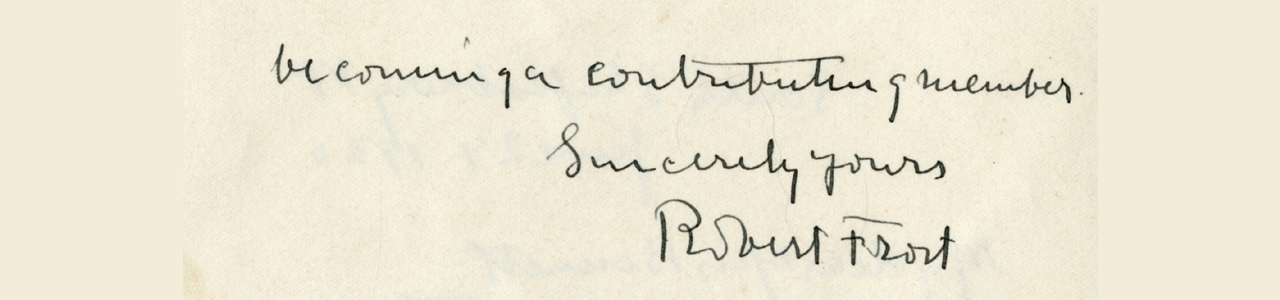 becoming a contributing member.
Sincerely yours
Robert Frost